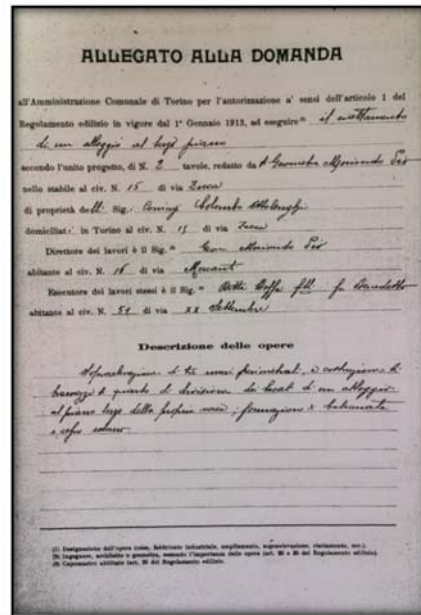 ALLEGATO ALLA DOMANDA
all'Amministrazione Comunale di Torino per l'autorizzazione a' sensi dell'articolo 1 del
Regolamento edilizio in vigore dal 1° Gennaio 1913, ad eseguire il
di un alloggio al terzo piano
secondo l'unito progetto, di N. 2 tavole, redatto da Geometra Moriondo Pio
nello stabile al civ. N. 15 di via
di proprietà dell Sig. Colombo Ottolenghi
domiciliat in Torino al civ. N. 15 di via
Direttore dei lavori è il Sig. Geom. Moriondo Pio
abitante al civ. N. 16 di via
Esecutore dei lavori stessi è il Sig. Ditta Boffa flli fu Benedetto
abitante al civ. N. 51 di via XX Settembre
Descrizione delle opere
Sopraelevazione di tre muri perimetrali, e costruzione di
tramezzi di quarto di divisione dei locali di un alloggio
al piano terzo della propria casa; formazione di
(1) Designazione dell'opera (casa, fabbricato industriale, ampliamento, sopraelevazione, riattamento, ecc.).
(2) Ingegnere, architetto o geometra, secondo l'importanza delle opere (art. del Regolamento edilizio).
(3) Capomastro abilitato (art. del Regolamento edilizio